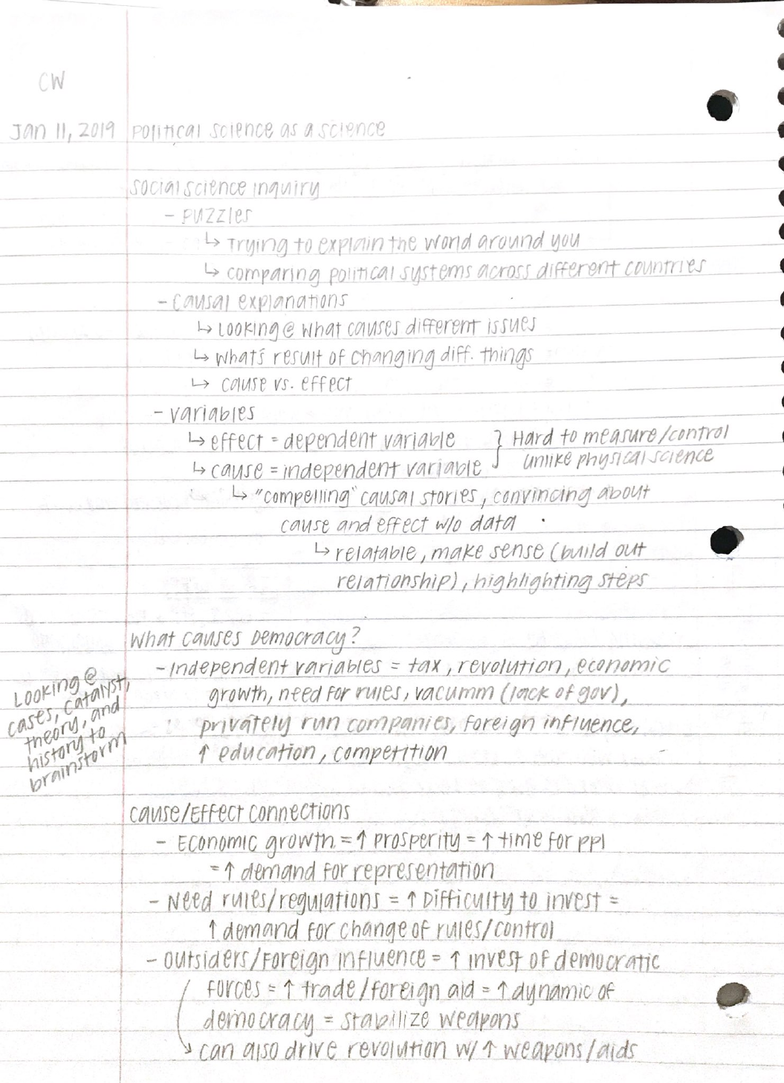 CW
Jan 11, 2019 Political science as a science
Social science inquiry
- Puzzles
↳ Trying to explain the world around you
↳ comparing political systems across different countries
- Causal explanations
↳ Looking @ what causes different issues
↳ What's result of changing diff. things
↳ cause vs. effect
- variables
↳ effect = dependent variable } Hard to measure/control
↳ cause = independent variable unlike physical science
↳ "compelling" causal stories, convincing about
cause and effect w/o data
↳ relatable, make sense (build out
relationship), highlighting steps
What causes Democracy?
- Independent variables = tax, revolution, economic
growth, need for rules, vacumm (lack of gov),
privately run companies, foreign influence,
↑ education, competition
Looking @
cases, catalyst,
theory, and
history to
brainstorm
Cause/Effect Connections
- Economic growth = ↑ Prosperity = ↑ time for ppl
= ↑ demand for representation
- Need rules/regulations = ↑ Difficulty to invest =
↑ demand for change of rules/control
- Outsiders/Foreign Influence = ↑ invest of democratic
forces = ↑ trade/foreign aid = ↑ dynamic of
democracy = stabilize weapons
↳ can also drive revolution w/ ↑ weapons/aids